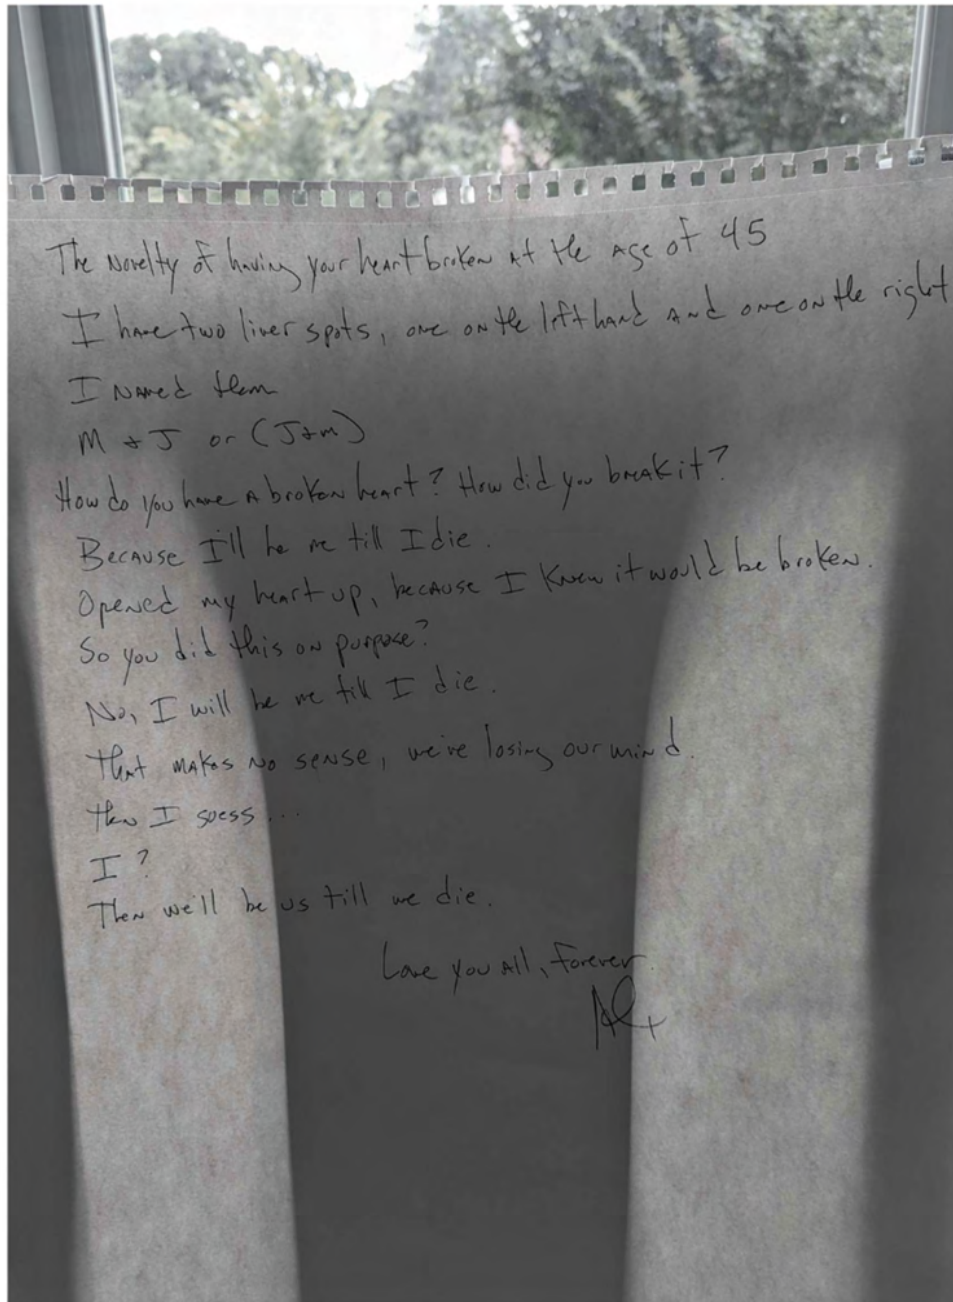 The Novelty of having your heart broken at the age of 45
I have two liver spots, one on the left hand and one on the right
I named them
M + J or (J+m)
How do you have a broken heart? How did you break it?
Because I'll be me till I die.
Opened my heart up, because I knew it would be broken.
So you did this on purpose?
No, I will be me till I die.
That makes no sense, we're losing our mind.
then I guess...
I?
Then we'll be us till we die.
Love you all, Forever.